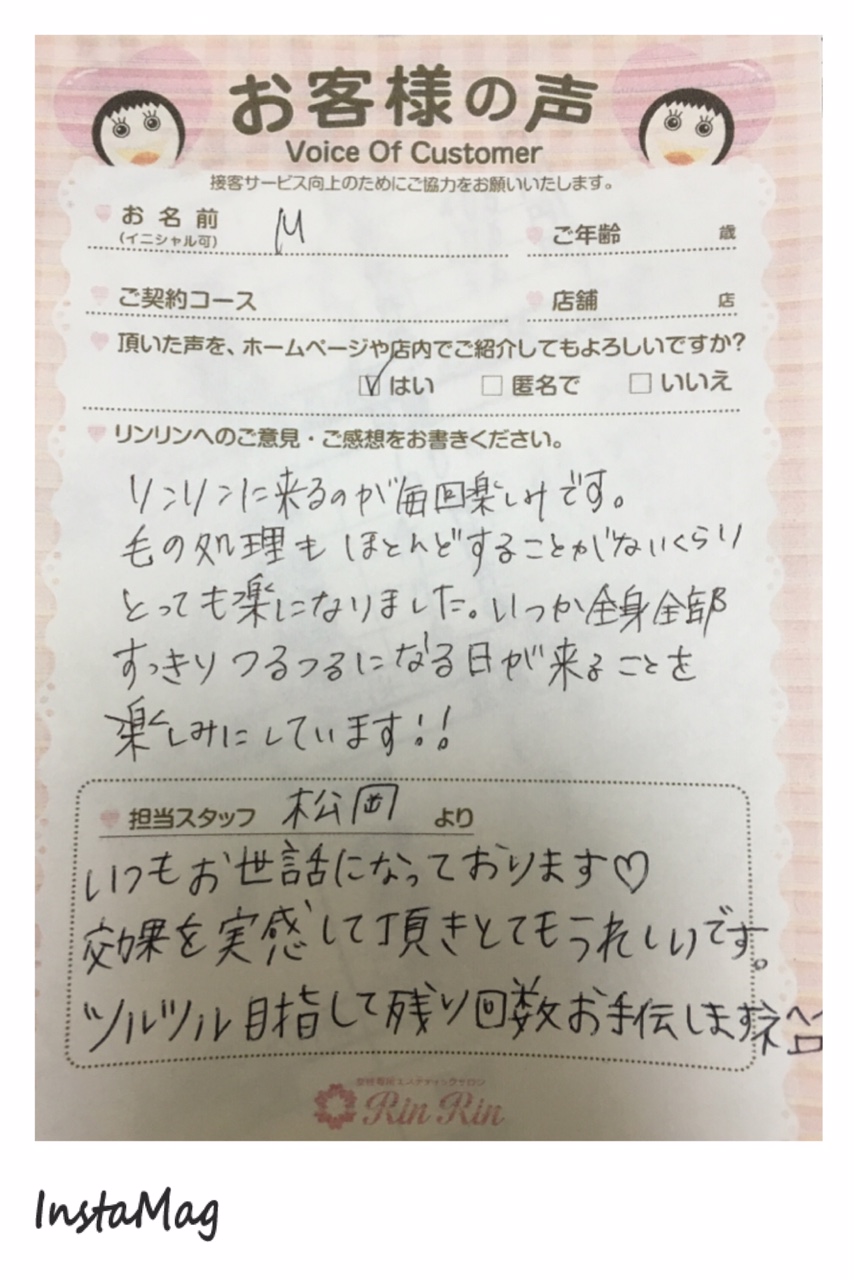 お客様の声
Voice Of Customer
接客サービス向上のためにご協力をお願いいたします。
お名前 M ご年齢 歳
(イニシャル可)
ご契約コース 店舗 店
頂いた声を、ホームページや店内でご紹介してもよろしいですか?
☑はい □匿名で □いいえ
リンリンへのご意見・ご感想をお書きください。
リンリンに来るのが毎回楽しみです。
毛の処理もほとんどすることがないくらい
とっても楽になりました。いつか全身全部
すっきりつるつるになる日が来ることを
楽しみにしています!!
担当スタッフ 松岡 より
いつもお世話になっております♡
効果を実感して頂きとてもうれしいです。
ツルツル目指して残り回数お手伝しますネ
女性専用エステティックサロン
Rin Rin
InstaMag